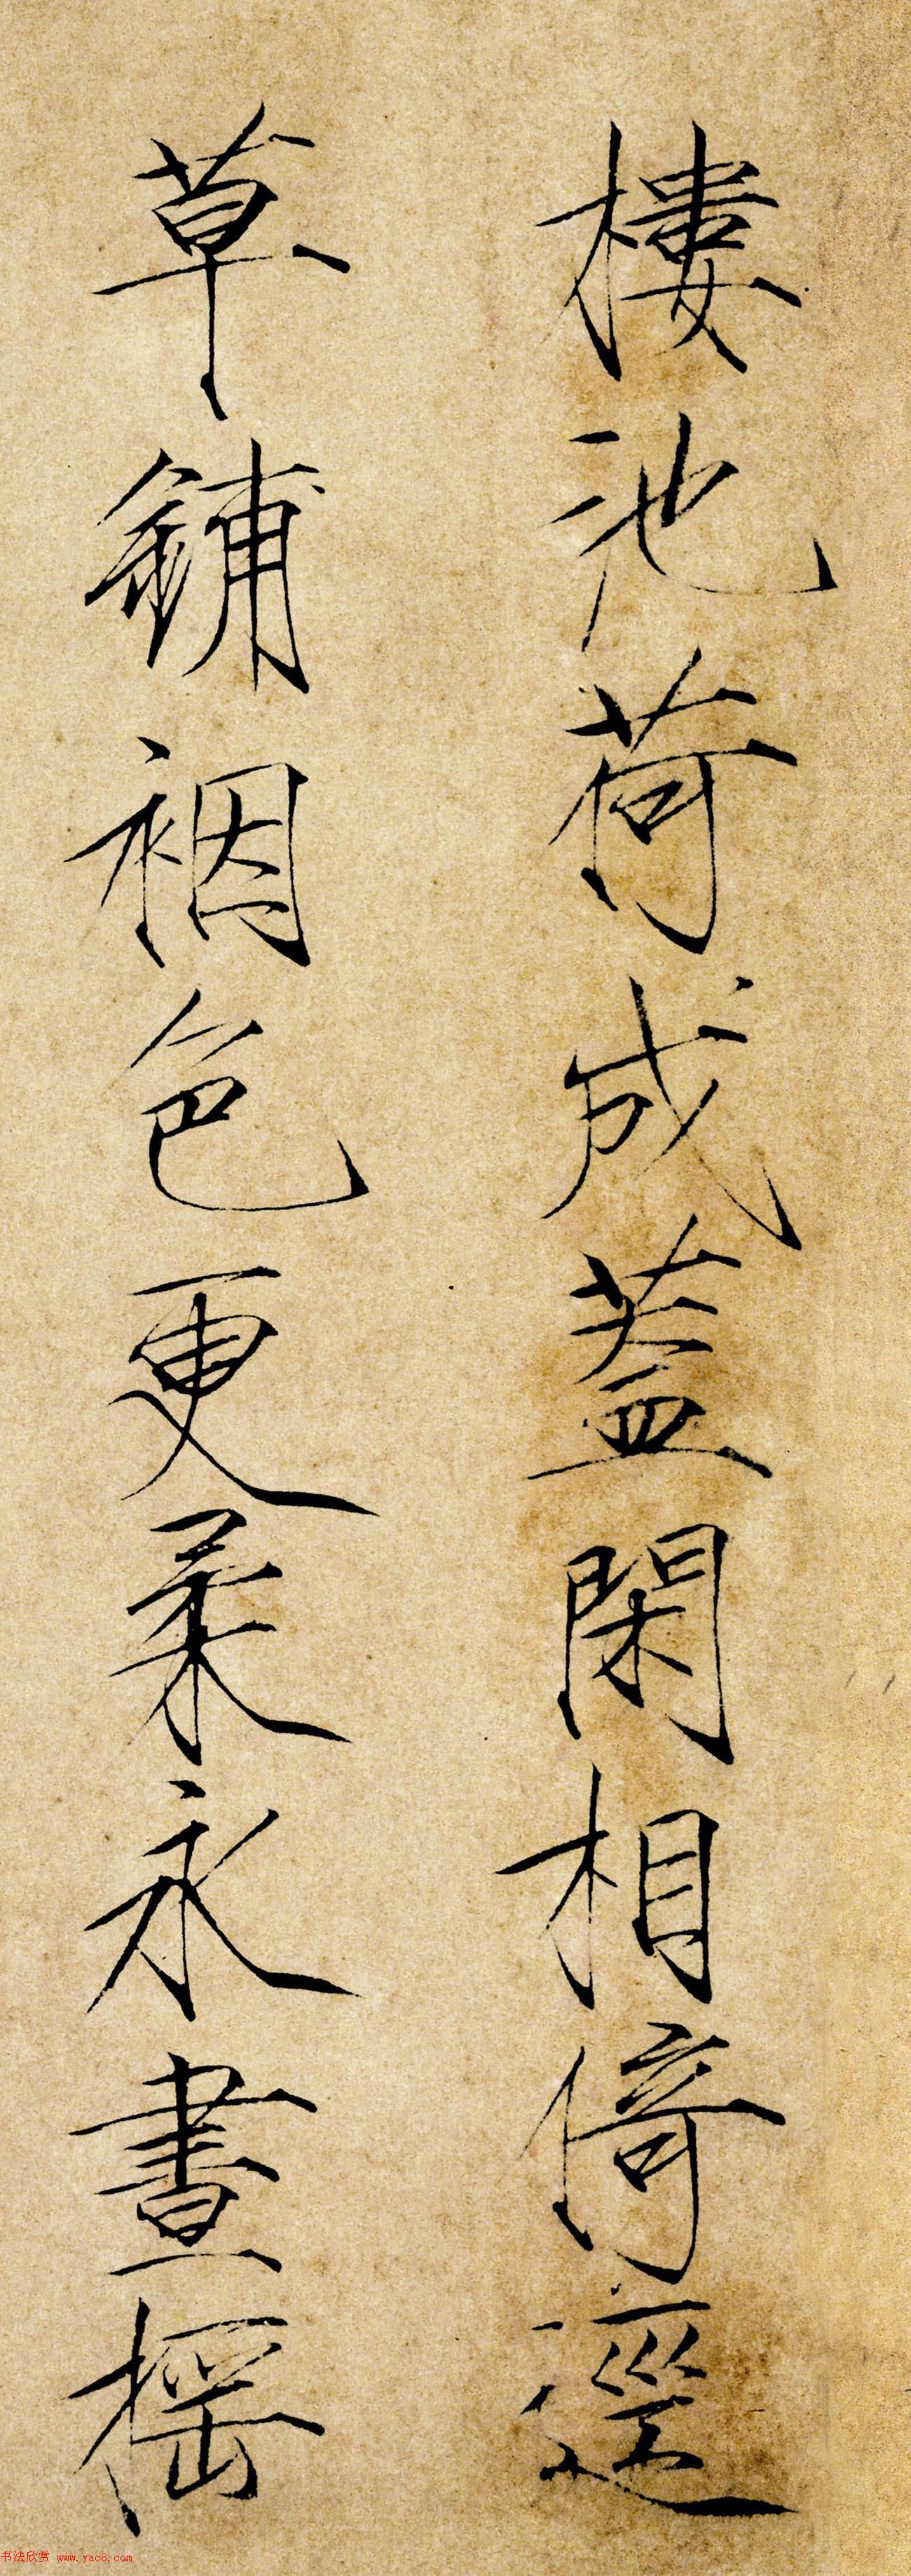 樓池荷成蓋閑相倚逕
草鋪裀色更柔永晝搖
书法欣赏 www.yac8.com